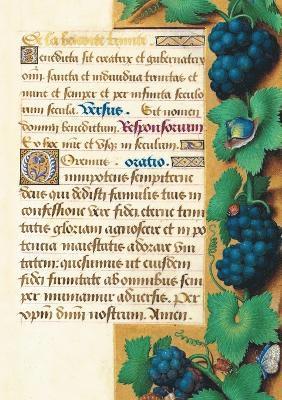 De la benoiste trinite.
Benedicta sit creatrix et gubernatrix
om. sancta et indiuidua trinitas et
nunc et semper et per infinita seculo
rum secula. Versus. Sit nomen
domini benedictum. Responsorium
Ex hoc nunc et usq; in seculum.
Oremus. oratio.
Omnipotens sempiterne
deus qui dedisti famulis tuis in
confessione vere fidei eterne trini
tatis gloriam agnoscere et in po
tencia maiestatis adorare vni
tatem: quesumus ut eiusdem
fidei firmitate ab omnibus sem
per muniamur aduersis. Per
xpm dnm nostrum. Amen.